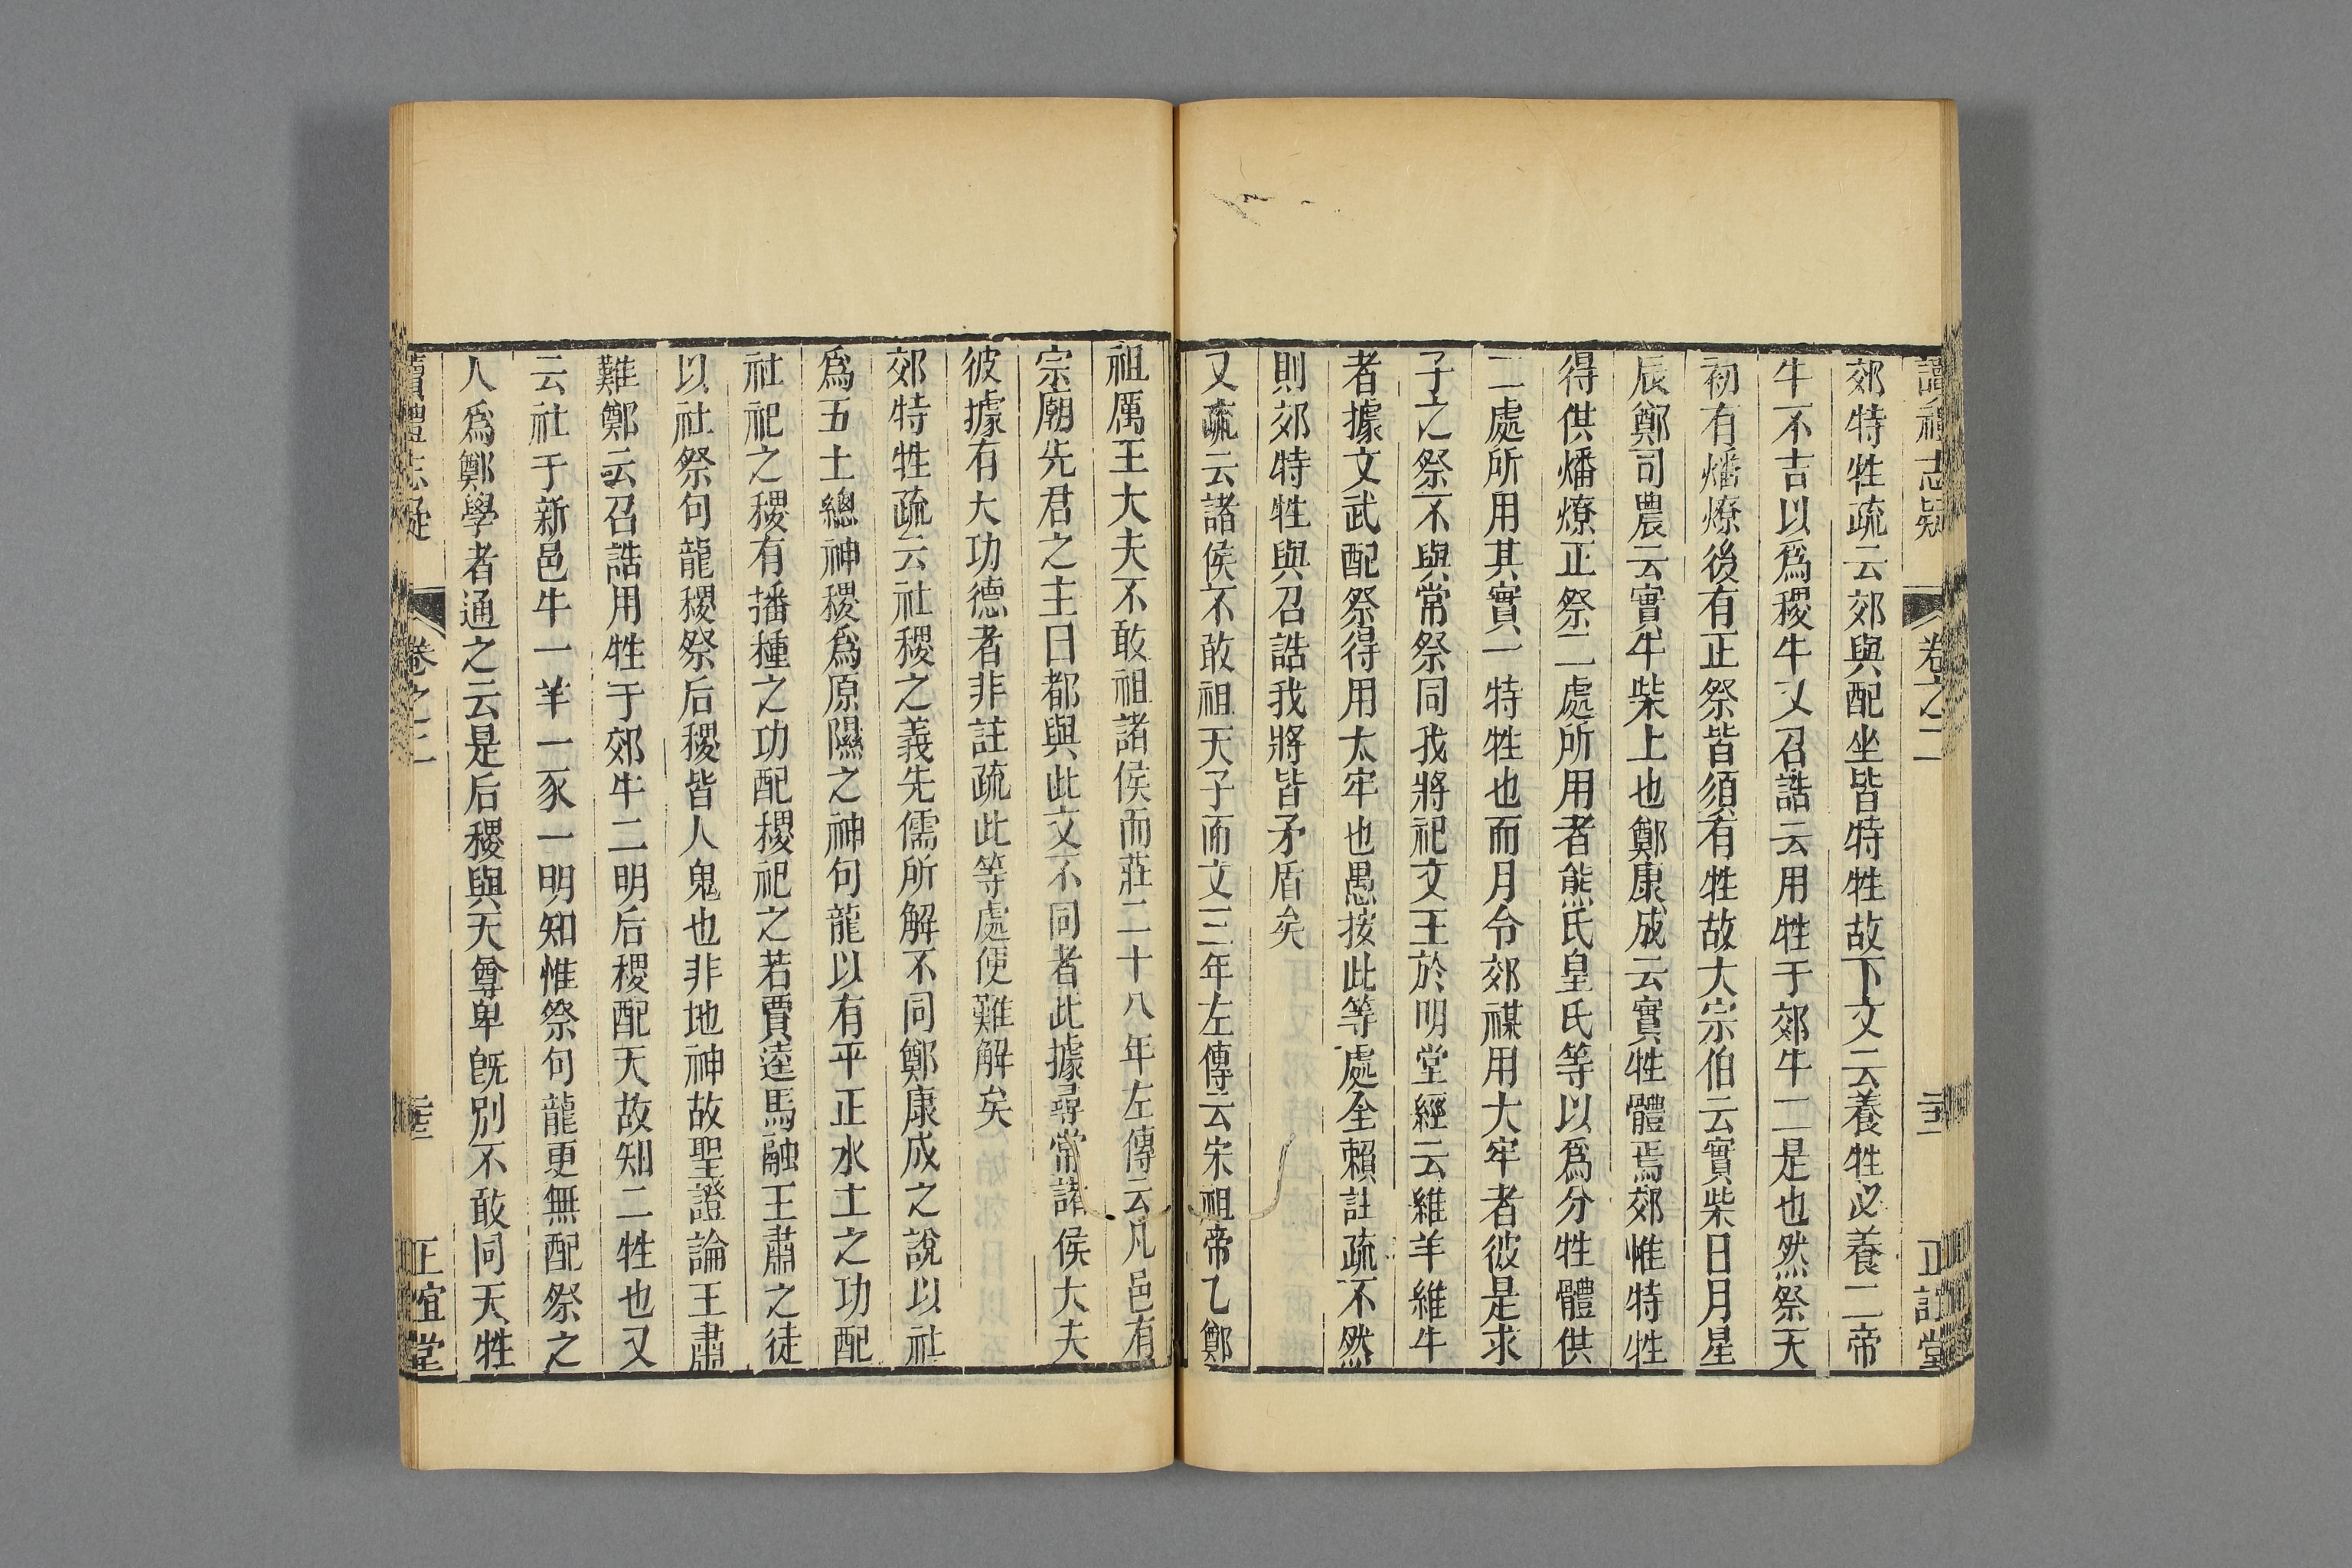 讀禮志疑 卷之二 三十二 正誼堂
郊特牲疏云郊與配坐皆特牲故下文云養牲必養二帝
牛不吉以爲稷牛又召誥云用牲于郊牛二是也然祭天
初有燔燎後有正祭皆須有牲故大宗伯云實柴日月星
辰鄭司農云實牛柴上也鄭康成云實牲體焉郊惟特牲
得供燔燎正祭二處所用者熊氏皇氏等以爲分牲體供
二處所用其實一特牲也而月令郊禖用大牢者彼是求
子之祭不與常祭同我將祀文王於明堂經云維羊維牛
者據文武配祭得用太牢也愚按此等處全賴註疏不然
則郊特牲與召誥我將皆矛盾矣
又疏云諸侯不敢祖天子而文三年左傳云宋祖帝乙鄭
祖厲王大夫不敢祖諸侯而莊二十八年左傳云凡邑有
宗廟先君之主曰都與此文不同者此據尋常諸侯大夫
彼據有大功德者非註疏此等處便難解矣
郊特牲疏云社稷之義先儒所解不同鄭康成之說以社
爲五土總神稷爲原隰之神句龍以有平正水土之功配
社祀之稷有播種之功配稷祀之若賈逵馬融王肅之徒
以社祭句龍稷祭后稷皆人鬼也非地神故聖證論王肅
難鄭云召誥用牲于郊牛二明后稷配天故知二牲也又
云社于新邑牛一羊一豕一明知惟祭句龍更無配祭之
人爲鄭學者通之云是后稷與天尊卑既別不敢同天牲
讀禮志疑 卷之二 正誼堂